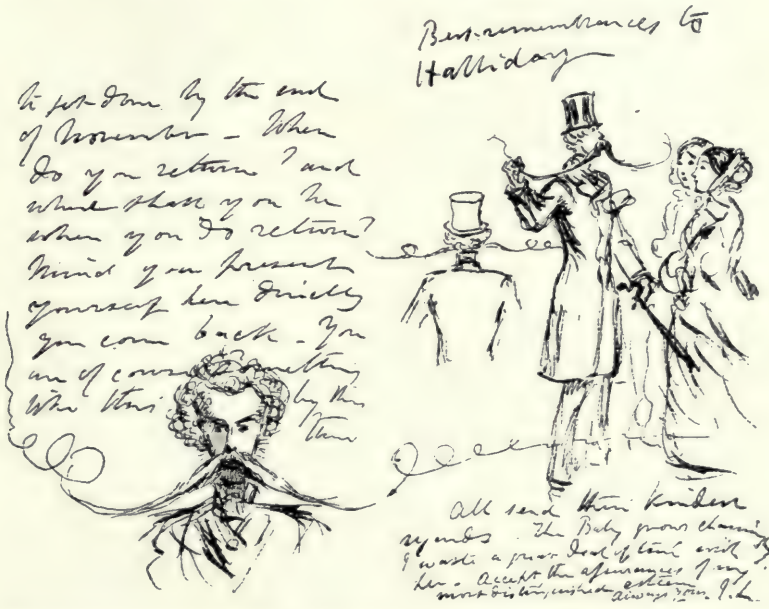 to get done by the end
of November – When
do you return? and
where shall you be
when you do return?
Mind you present
yourself here directly
you come back. You
are of course something
like this by this
time
Best remembrances to
Halliday
All send their kindest
regards. The Baby grows charming
I waste a great deal of time with
her. Accept the assurances of my
most distinguished esteem
always yours